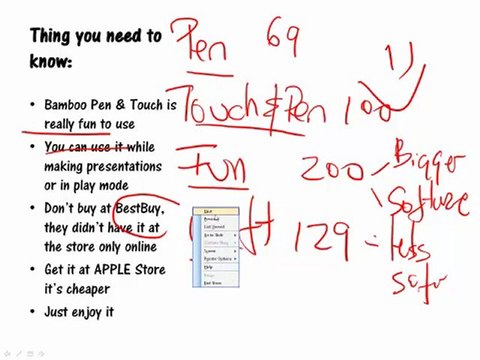 Thing you need to
know:
Bamboo Pen & Touch is
really fun to use
You can use it while
making presentations
or in play mode
Don't buy at BestBuy,
they didn't have it at
the store only online
Get it at APPLE Store
it's cheaper
Just enjoy it
Pen 69
Touch & Pen 100
Fun 200 Bigger
Software
129 = less
Next
Previous
Last Viewed
Go to Slide
Custom Show
Screen
Pointer Options
Help
Pause
End Show